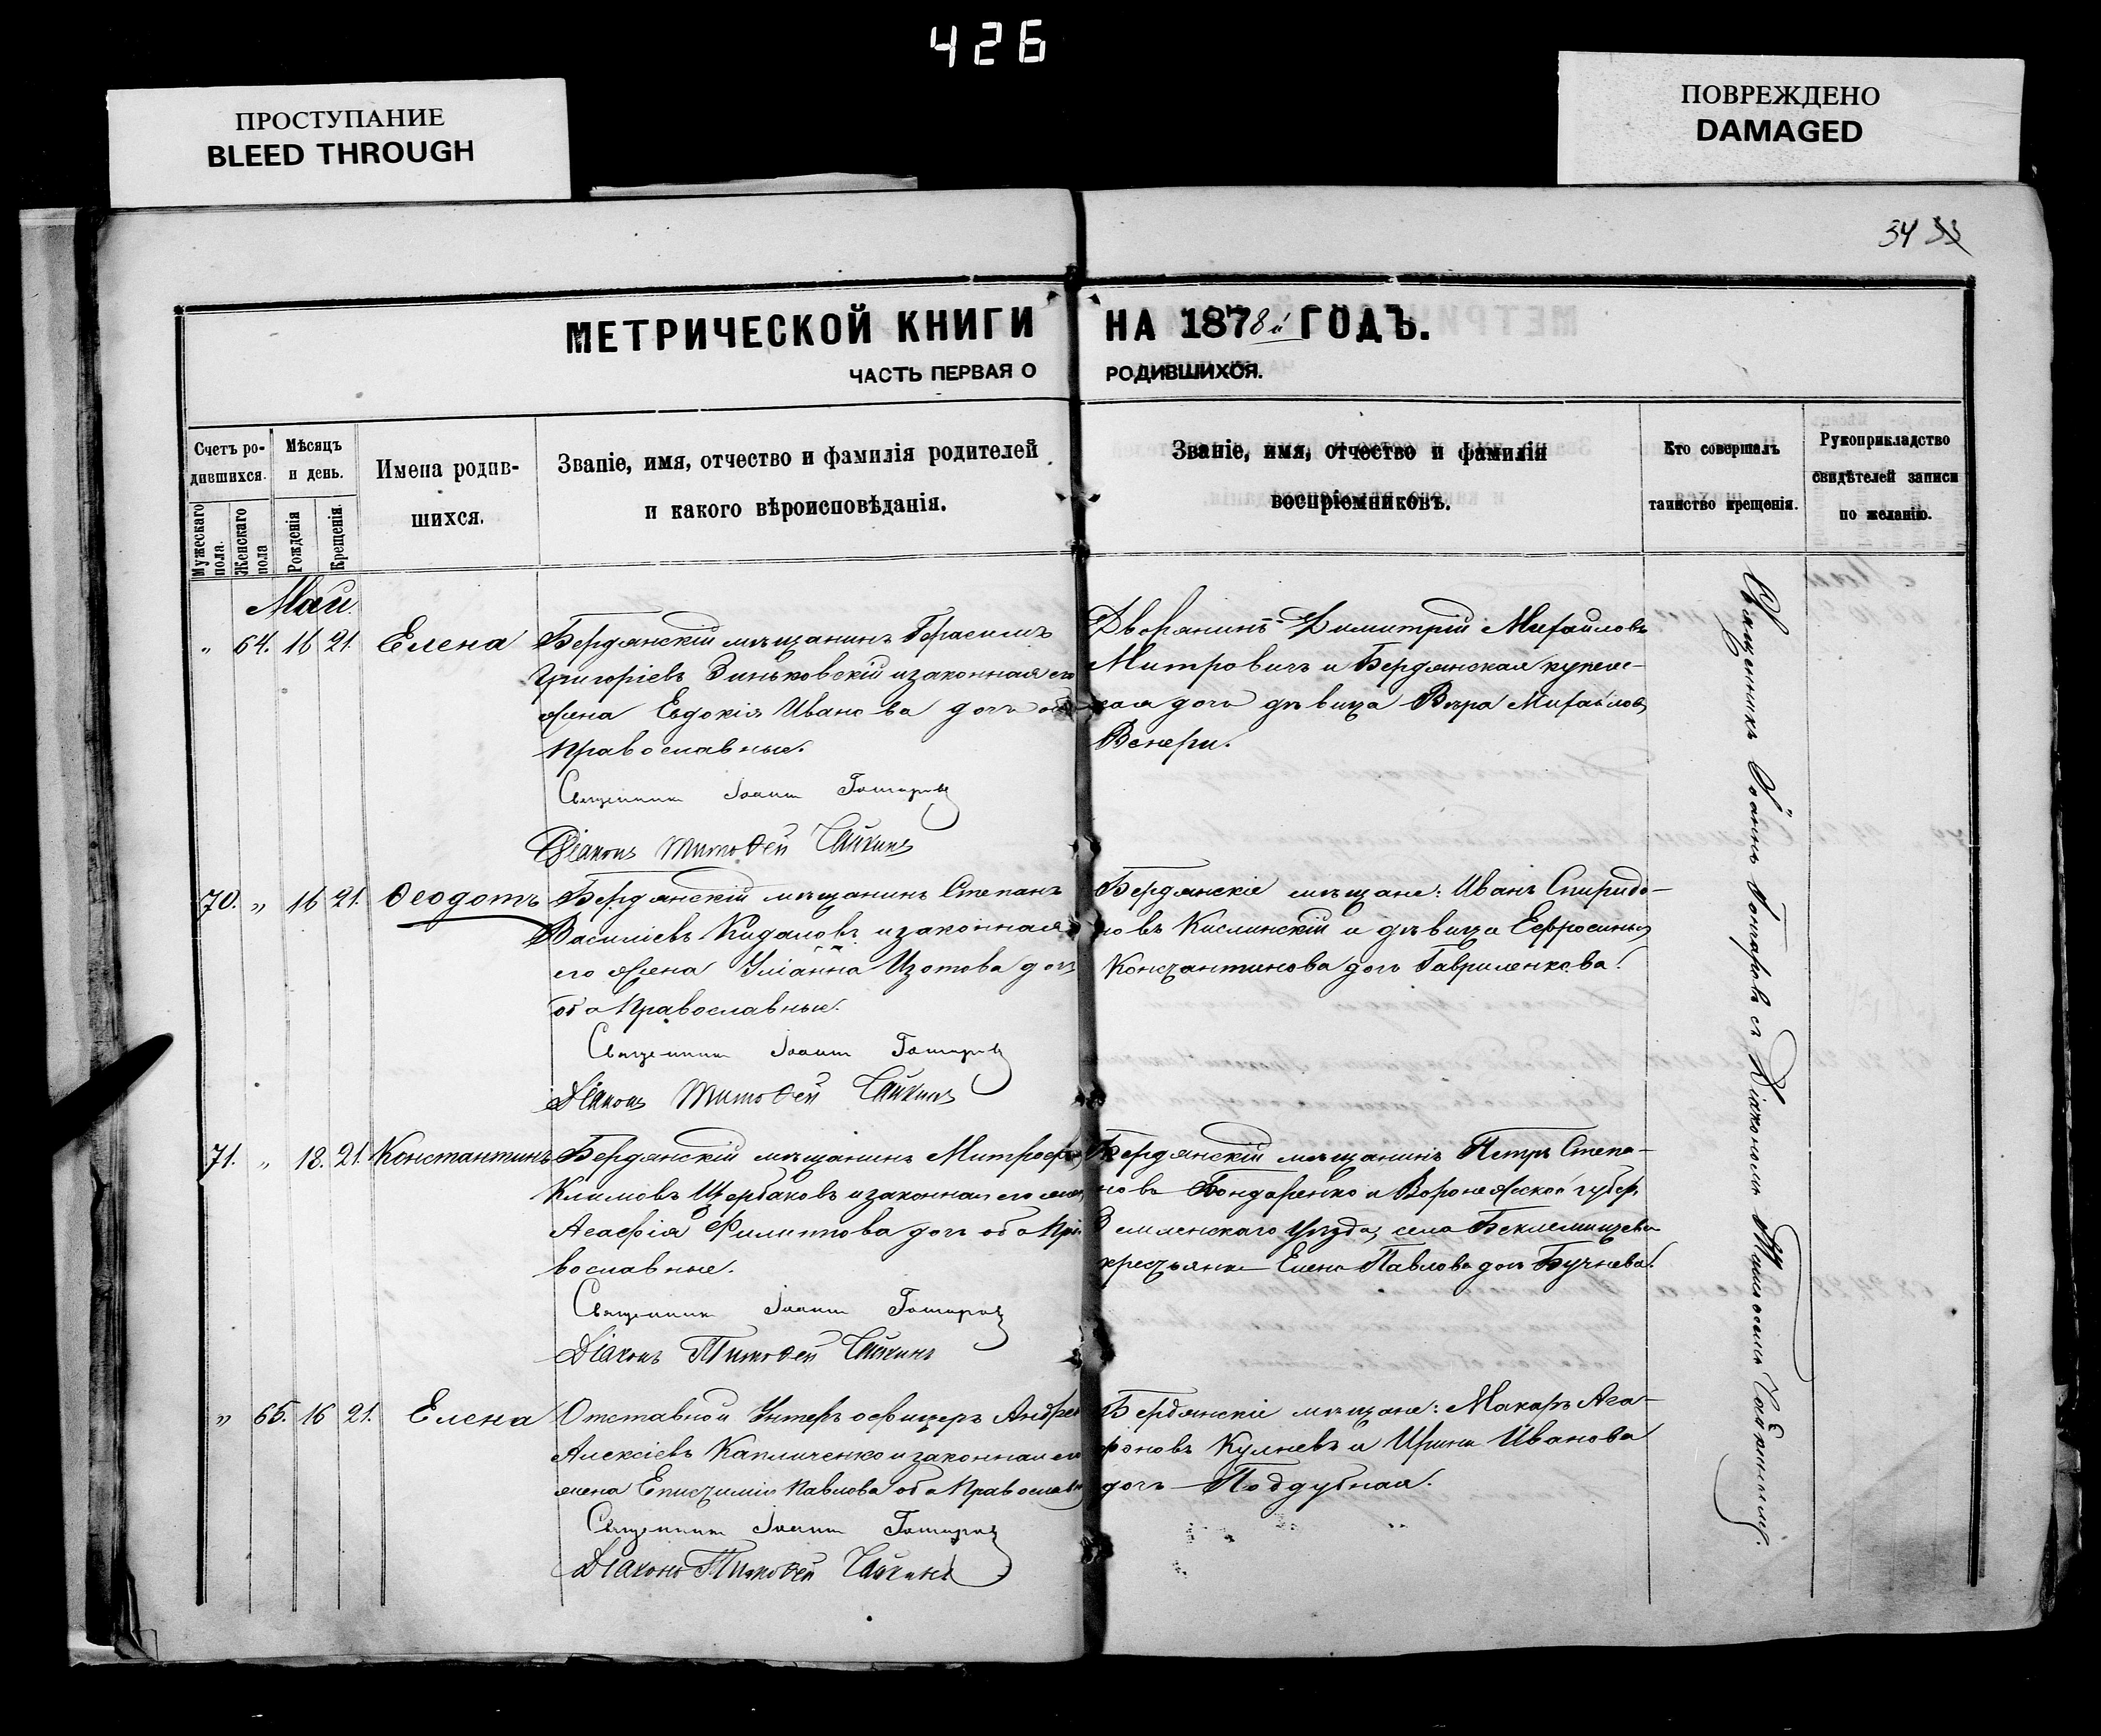 426
ПРОСТУПАНИЕ
BLEED THROUGH
ПОВРЕЖДЕНО
DAMAGED
34 33
МЕТРИЧЕСКОЙ КНИГИ НА 1878й ГОДЪ.
ЧАСТЬ ПЕРВАЯ О РОДИВШИХСЯ.
Счетъ ро-
дившихся.
Мужескаго пола.
Женскаго пола
Мѣсяцъ
и день.
Рожденія
Крещенія.
Имена родив-
шихся.
Званіе, имя, отчество и фамилія родителей
и какого вѣроисповѣданія.
Званіе, имя, отчество и фамилія
воспріемниковъ.
Кто совершалъ
таинство крещенія.
Рукоприкладство
свидѣтелей записи
по желанію.
Май.
„ 64. 16 21. Елена
Бердянскій мѣщанинъ Герасимъ
Григоріевъ Зиньковскій и законная его
жена Евдокія Иванова дочь оба
Православные.
Священникъ Іоаннъ Гончаровъ
Діаконъ Тимоѳей Чайкинъ
Дворянинъ Димитрій Михайловъ
Митровичъ и Бердянская купече-
ская дочь дѣвица Вѣра Михайлова
Венери.
70. „ 16 21. Ѳеодотъ
Бердянскій мѣщанинъ Степанъ
Василіевъ Кидаловъ и законная
его жена Уліанна Изотова дочь
оба Православные.
Священникъ Іоаннъ Гончаровъ
Діаконъ Тимоѳей Чайкинъ
Бердянскіе мѣщане: Иванъ Спиридо-
новъ Кислинскій и дѣвица Ефросинья
Константинова дочь Гавриленкова.
71. „ 18. 21. Константинъ
Бердянскій мѣщанинъ Митрофанъ
Климовъ Щербаковъ и законная его жена
Агафія Филиппова дочь оба Пра-
вославные.
Священникъ Іоаннъ Гончаровъ
Діаконъ Тимоѳей Чайкинъ
Бердянскій мѣщанинъ Петръ Степа-
новъ Бондаренко и Воронежской губер.
Землянскаго Уѣзда, села Беклемищева
крестьянка Елена Павлова дочь Бучнева.
„ 65. 16 21. Елена
Отставной Унтеръ офицеръ Андрей
Алексіевъ Капличенко и законная его
жена Епистимія Павлова оба Православн
Священникъ Іоаннъ Гончаровъ
Діаконъ Тимоѳей Чайкинъ
Бердянскіе мѣщане: Макаръ Ага-
фоновъ Кулневъ и Ирина Иванова
дочь Поддубная.
Священникъ Іоаннъ Гончаровъ съ Діакономъ Тимоѳеемъ Чайкинымъ.